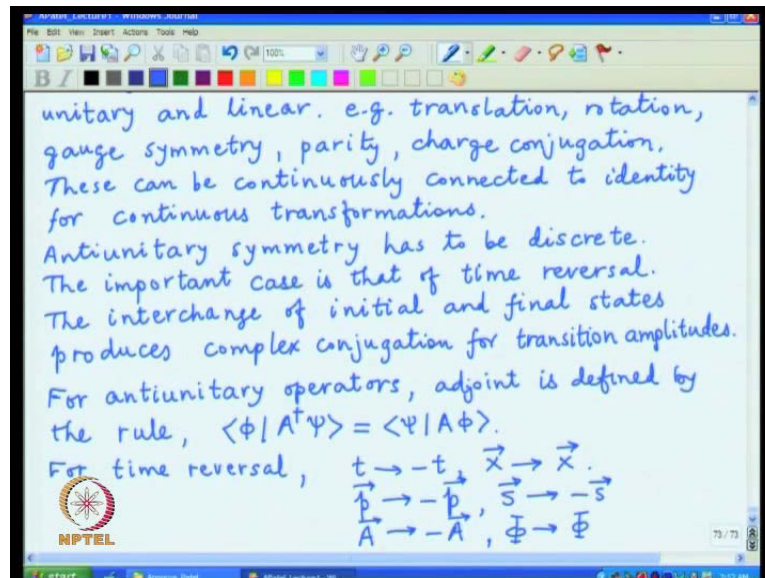 APatel_Lecture1 - Windows Journal
File Edit View Insert Actions Tools Help
100%
B I
unitary and linear. e.g. translation, rotation,
gauge symmetry, parity, charge conjugation.
These can be continuously connected to identity
for continuous transformations.
Antiunitary symmetry has to be discrete.
The important case is that of time reversal.
The interchange of initial and final states
produces complex conjugation for transition amplitudes.
For antiunitary operators, adjoint is defined by
the rule, ⟨Φ|A†Ψ⟩ = ⟨Ψ|AΦ⟩.
For time reversal, t → -t, x⃗ → x⃗.
p⃗ → -p⃗, s⃗ → -s⃗
A⃗ → -A⃗, Φ → Φ
NPTEL
73/73
start